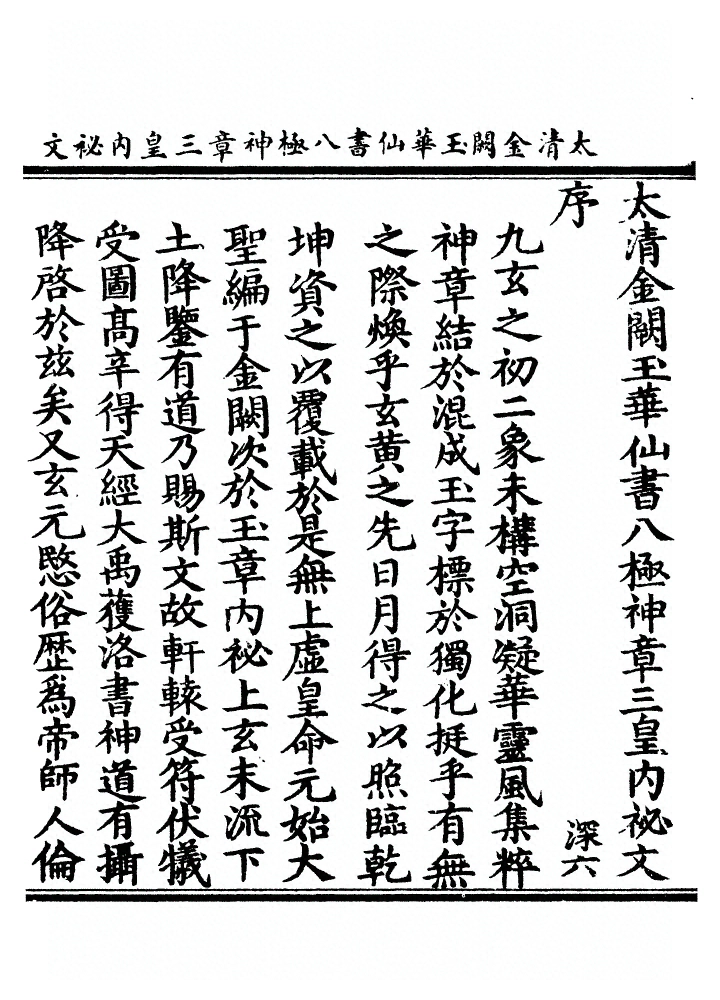 太清金闕玉華仙書八極神章三皇内祕文
太清金闕玉華仙書八極神章三皇内祕文
序
深六
九玄之初二象未構空洞凝華靈風集粹
神章結於混成玉字標於獨化挺乎有無
之際煥乎玄黄之先日月得之以照臨乾
坤資之以覆載於是無上虛皇命元始大
聖編于金闕次於玉章内祕上玄未流下
土降鑒有道乃賜斯文故軒轅受符伏犧
受圖髙辛得天經大禹獲洛書神道有攝
降啓於兹矣又玄元愍俗歷爲帝師人倫